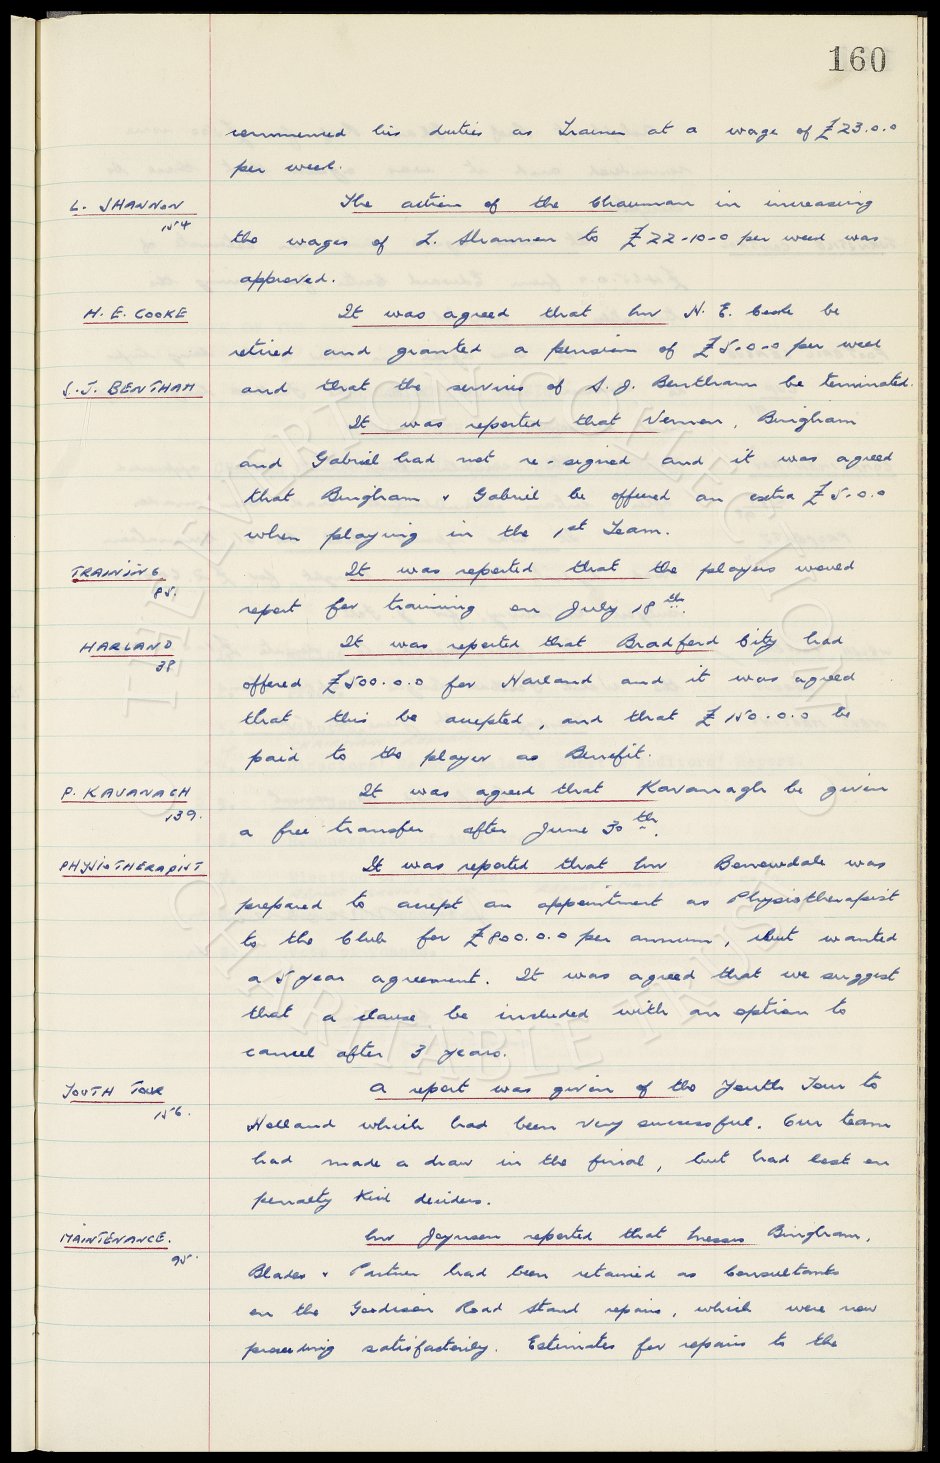 160
recommenced his duties as Trainer at a wage of £23.0.0
per week.
L. SHANNON The action of the Chairman in increasing
154
the wages of L. Shannon to £22-10-0 per week was
approved.
H. E. COOKE It was agreed that Mr H. E. Cooke be
retired and granted a pension of £5.0-0 per week
S.J. BENTHAM and that the services of S. J. Bentham be terminated.
It was reported that Vernon, Bingham
and Gabriel had not re-signed and it was agreed
that Bingham & Gabriel be offered an extra £5.0.0
when playing in the 1st Team.
TRAINING It was reported that the players would
85.
report for training on July 18th.
HARLAND It was reported that Bradford City had
38
offered £500.0.0 for Harland and it was agreed
that this be accepted, and that £150.0.0 be
paid to the player as Benefit.
P. KAVANAGH It was agreed that Kavanagh be given
139.
a free transfer after June 30th.
PHYSIOTHERAPIST It was reported that Mr Borrowdale was
prepared to accept an appointment as Physiotherapist
to the Club for £800.0.0 per annum, but wanted
a 5 year agreement. It was agreed that we suggest
that a clause be included with an option to
cancel after 3 years.
YOUTH TOUR A report was given of the Youth Tour to
156.
Holland which had been very successful. Our team
had made a draw in the final, but had lost on
penalty kick deciders.
MAINTENANCE. Mr Joynson reported that Messrs Bingham,
95.
Blades & Partner had been retained as Consultants
on the Goodison Road Stand repairs, which were now
proceeding satisfactorily. Estimates for repairs to the
THE EVERTON COLLECTION
CHARITABLE TRUST